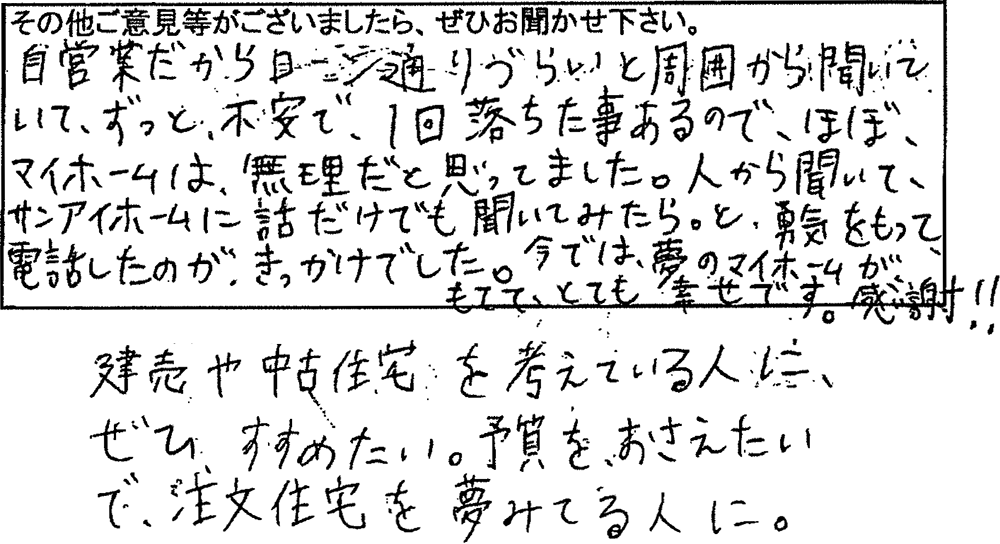 その他ご意見等がございましたら、ぜひお聞かせ下さい。
自営業だからローン通りづらいと周囲から聞いて
いて、ずっと、不安で、1回落ちた事あるので、ほぼ、
マイホームは、無理だと思ってました。人から聞いて、
サンアイホームに話だけでも聞いてみたら。と、勇気をもって、
電話したのが、きっかけでした。今では、夢のマイホームが、
もてて、とても幸せです。感謝!!
建売や中古住宅を考えている人に、
ぜひ、すすめたい。予算を、おさえたい
で、注文住宅を夢みてる人に。